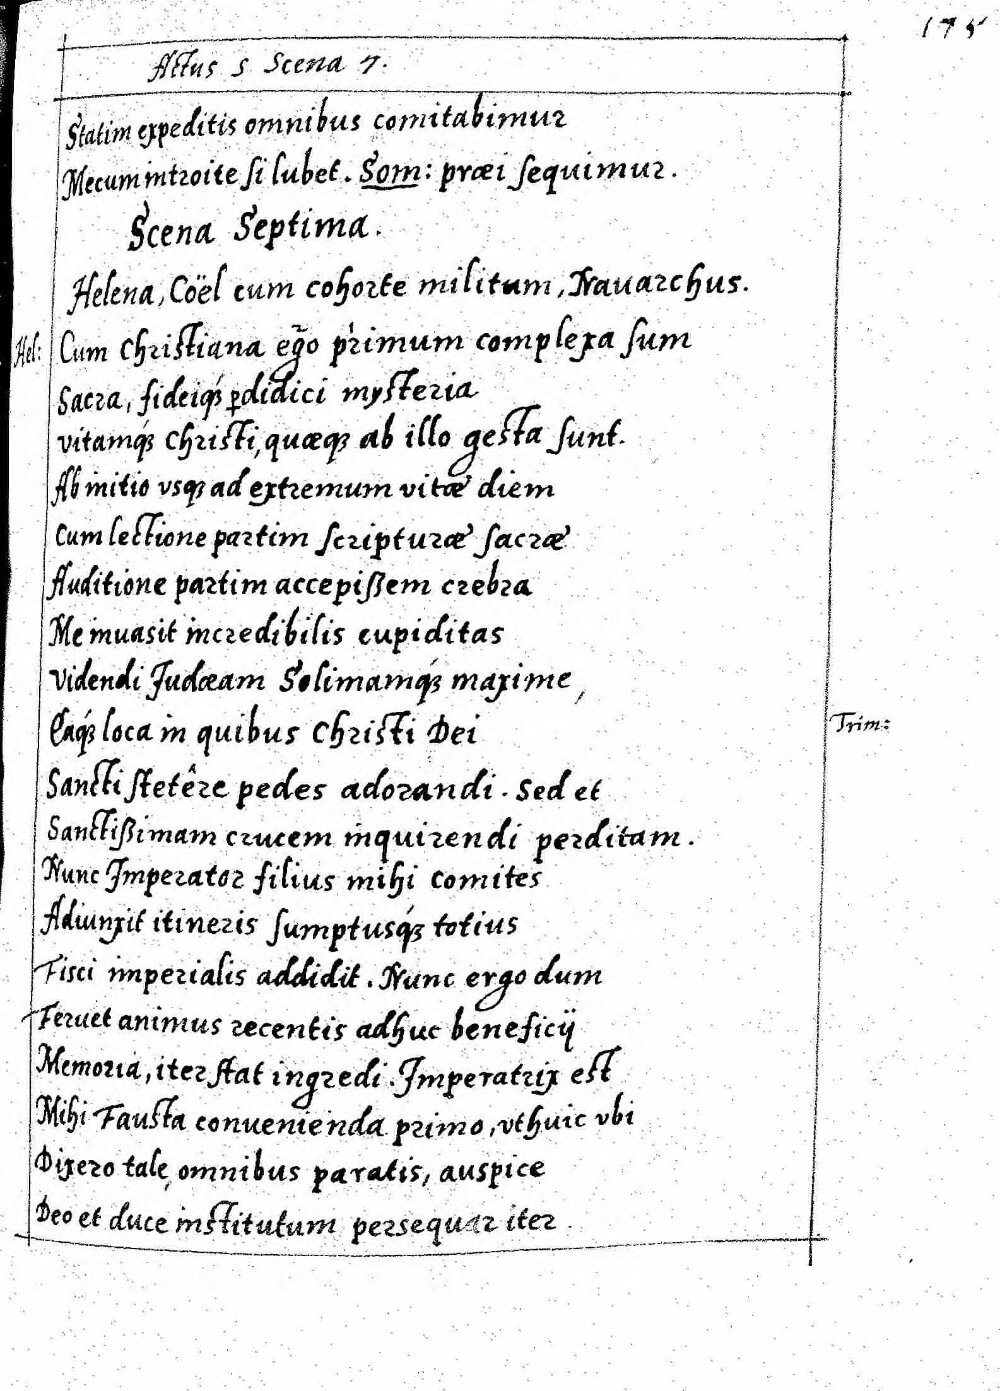 175
Actus 5 Scena 7.
Statim expeditis omnibus comitabimur
Mecum introite si lubet. Som: præi sequimur.
Scena Septima.
Helena, Coël cum cohorte militum, Nauarchus.
Hel: Cum christiana ego primum complexa sum
Sacra, fideiq́ꝫ ꝑdidici mysteria
vitamq́ꝫ christi, quæqꝫ ab illo gesta sunt.
Ab initio vsqꝫ ad extremum vitæ diem
Cum lectione partim scripturæ sacræ
Auditione partim accepißem crebra
Me inuasit incredibilis cupiditas
Videndi Judæam Solimamq́ꝫ maxime,
Eaq́ꝫ loca in quibus christi Dei
Trim:
Sancti stetêre pedes adorandi. Sed et
Sanctißimam crucem inquirendi perditam.
Nunc Imperator filius mihi comites
Adiunxit itineris sumptusq́ꝫ totius
Fisci imperialis addidit. Nunc ergo dum
Feruet animus recentis adhuc beneficij
Memoria, iter stat ingredi. Imperatrix est
Mihi Fausta conuenienda primo, vt huic vbi
Dixero tale, omnibus paratis, auspice
Deo et duce institutum persequar iter.